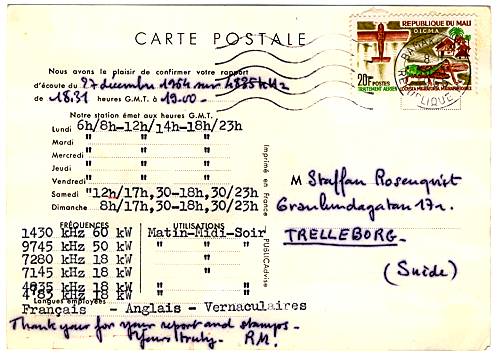 CARTE POSTALE
REPUBLIQUE DU MALI
O.I.C.M.A.
20F POSTES
TRAITEMENT AERIEN
Nous avons le plaisir de confirmer votre rapport
d'écoute du 27 decembre 1964 sur 4835 kHz
de 18.31 heures G.M.T. à 19.00-
Notre station émet aux heures G.M.T.
Lundi 6h/8h-12h/14h-18h/23h
Mardi " " "
Mercredi " " "
Jeudi " " "
Vendredi " " "
Samedi "12h/17h,30-18h,30/23h
Dimanche 8h/17h,30-18h,30/23h
Imprimé en France
PUBLICAdvise
M Staffan Rosenqvist
Granlundagatan 17 c.
TRELLEBORG.
(Suède)
FRÉQUENCES UTILISATIONS
1430 kH 60 kW Matin-Midi-Soir
9745 kH 50 kW " " "
7280 kH 18 kW "
7145 kH 18 kW "
4835 kH 18 kW " "
4783 kH 18 kW " "
Langues employées
Français - Anglais - Vernaculaires
Thank your for your report and stamps-
Yours truly. RM!